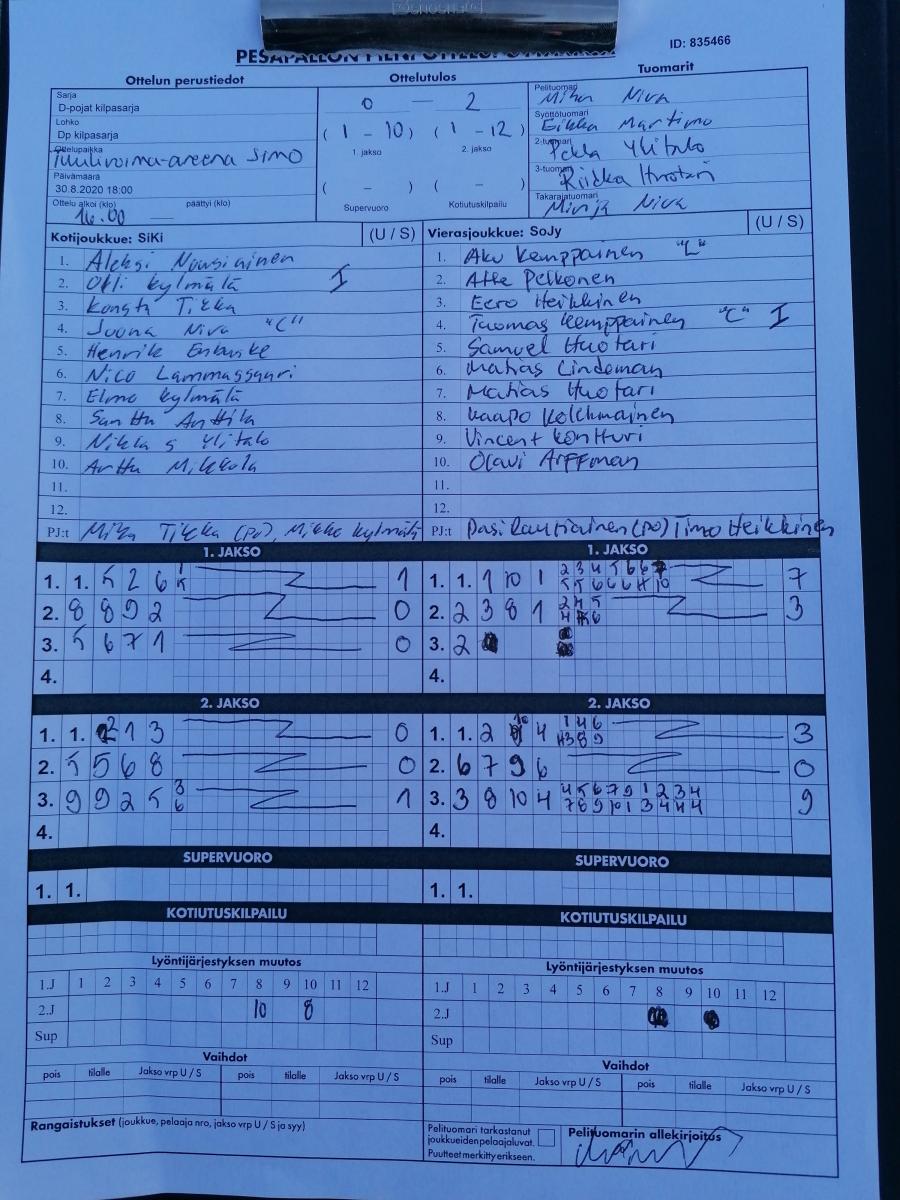 ID: 835466
Ottelun perustiedot
Ottelutulos
Tuomarit
Sarja
D-pojat kilpasarja
Lohko
Dp kilpasarja
Ottelupaikka
Tuulivoima-areena Simo
Päivämäärä
30.8.2020 18:00
Ottelu alkoi (klo) päättyi (klo)
16.00
0 — 2
( 1 - 10 ) ( 1 - 12 )
1. jakso 2. jakso
( - ) ( - )
Supervuoro Kotiutuskilpailu
Pelituomari
Niva
Syöttötuomari
Eikka Martimo
2-tuomari
Pekka Ylitalo
3-tuomari
Riikka Huotari
Takarajatuomari
Minja Niva
Kotijoukkue: SiKi (U / S)
1. Aleksi Nousiainen
2. Olli Kylmälä I
3. Konsta Tikka
4. Joona Niva "C"
5. Henrik
6. Nico Lammassaari
7. Elmo Kylmälä
8. Santtu Anttila
9. Niklas Ylitalo
10. Arttu Mikkola
11.
12.
PJ:t Mika Tikka (PJ), Mikko Kylmälä
Vierasjoukkue: SoJy (U / S)
1. Aku Kemppainen "L"
2. Atte Pelkonen
3. Eero Heikkinen
4. Tuomas Kemppainen "C" I
5. Samuel Huotari
6. Matias Lindeman
7. Matias Huotari
8. Kaapo Kolehmainen
9. Vincent Kontturi
10. Olavi Arffman
11.
12.
PJ:t Pasi Rautiainen (PJ) Timo Heikkinen
1. JAKSO
1. 1. 5 2 6 1 5 1
2. 8 8 9 2 0
3. 5 6 7 1 0
4.
1. JAKSO
1. 1. 1 10 1 2 3 4 5 6 6 7 7
5 5 6 6 6 10
2. 2 3 8 1 2 4 5 3
3. 2
4.
2. JAKSO
1. 1. 2 1 3 0
2. 5 5 6 8 0
3. 9 9 2 5 3 6 1
4.
2. JAKSO
1. 1. 2 10 4 1 4 6 3
3 8 9
2. 6 7 9 6 0
3. 3 8 10 4 4 5 6 7 9 1 2 3 4 9
7 8 9 10 1 3 4 4 4
4.
SUPERVUORO
1. 1.
SUPERVUORO
1. 1.
KOTIUTUSKILPAILU
KOTIUTUSKILPAILU
Lyöntijärjestyksen muutos
1.J 1 2 3 4 5 6 7 8 9 10 11 12
2.J 10 8
Sup
Lyöntijärjestyksen muutos
1.J 1 2 3 4 5 6 7 8 9 10 11 12
2.J
Sup
Vaihdot
pois tilalle Jakso vrp U / S pois tilalle Jakso vrp U / S
Vaihdot
pois tilalle Jakso vrp U / S pois tilalle Jakso vrp U / S
Rangaistukset (joukkue, pelaaja nro, jakso vrp U / S ja syy)
Pelituomari tarkastanut
joukkueiden pelaajaluvat.
Puutteet merkitty erikseen.
Pelituomarin allekirjoitus